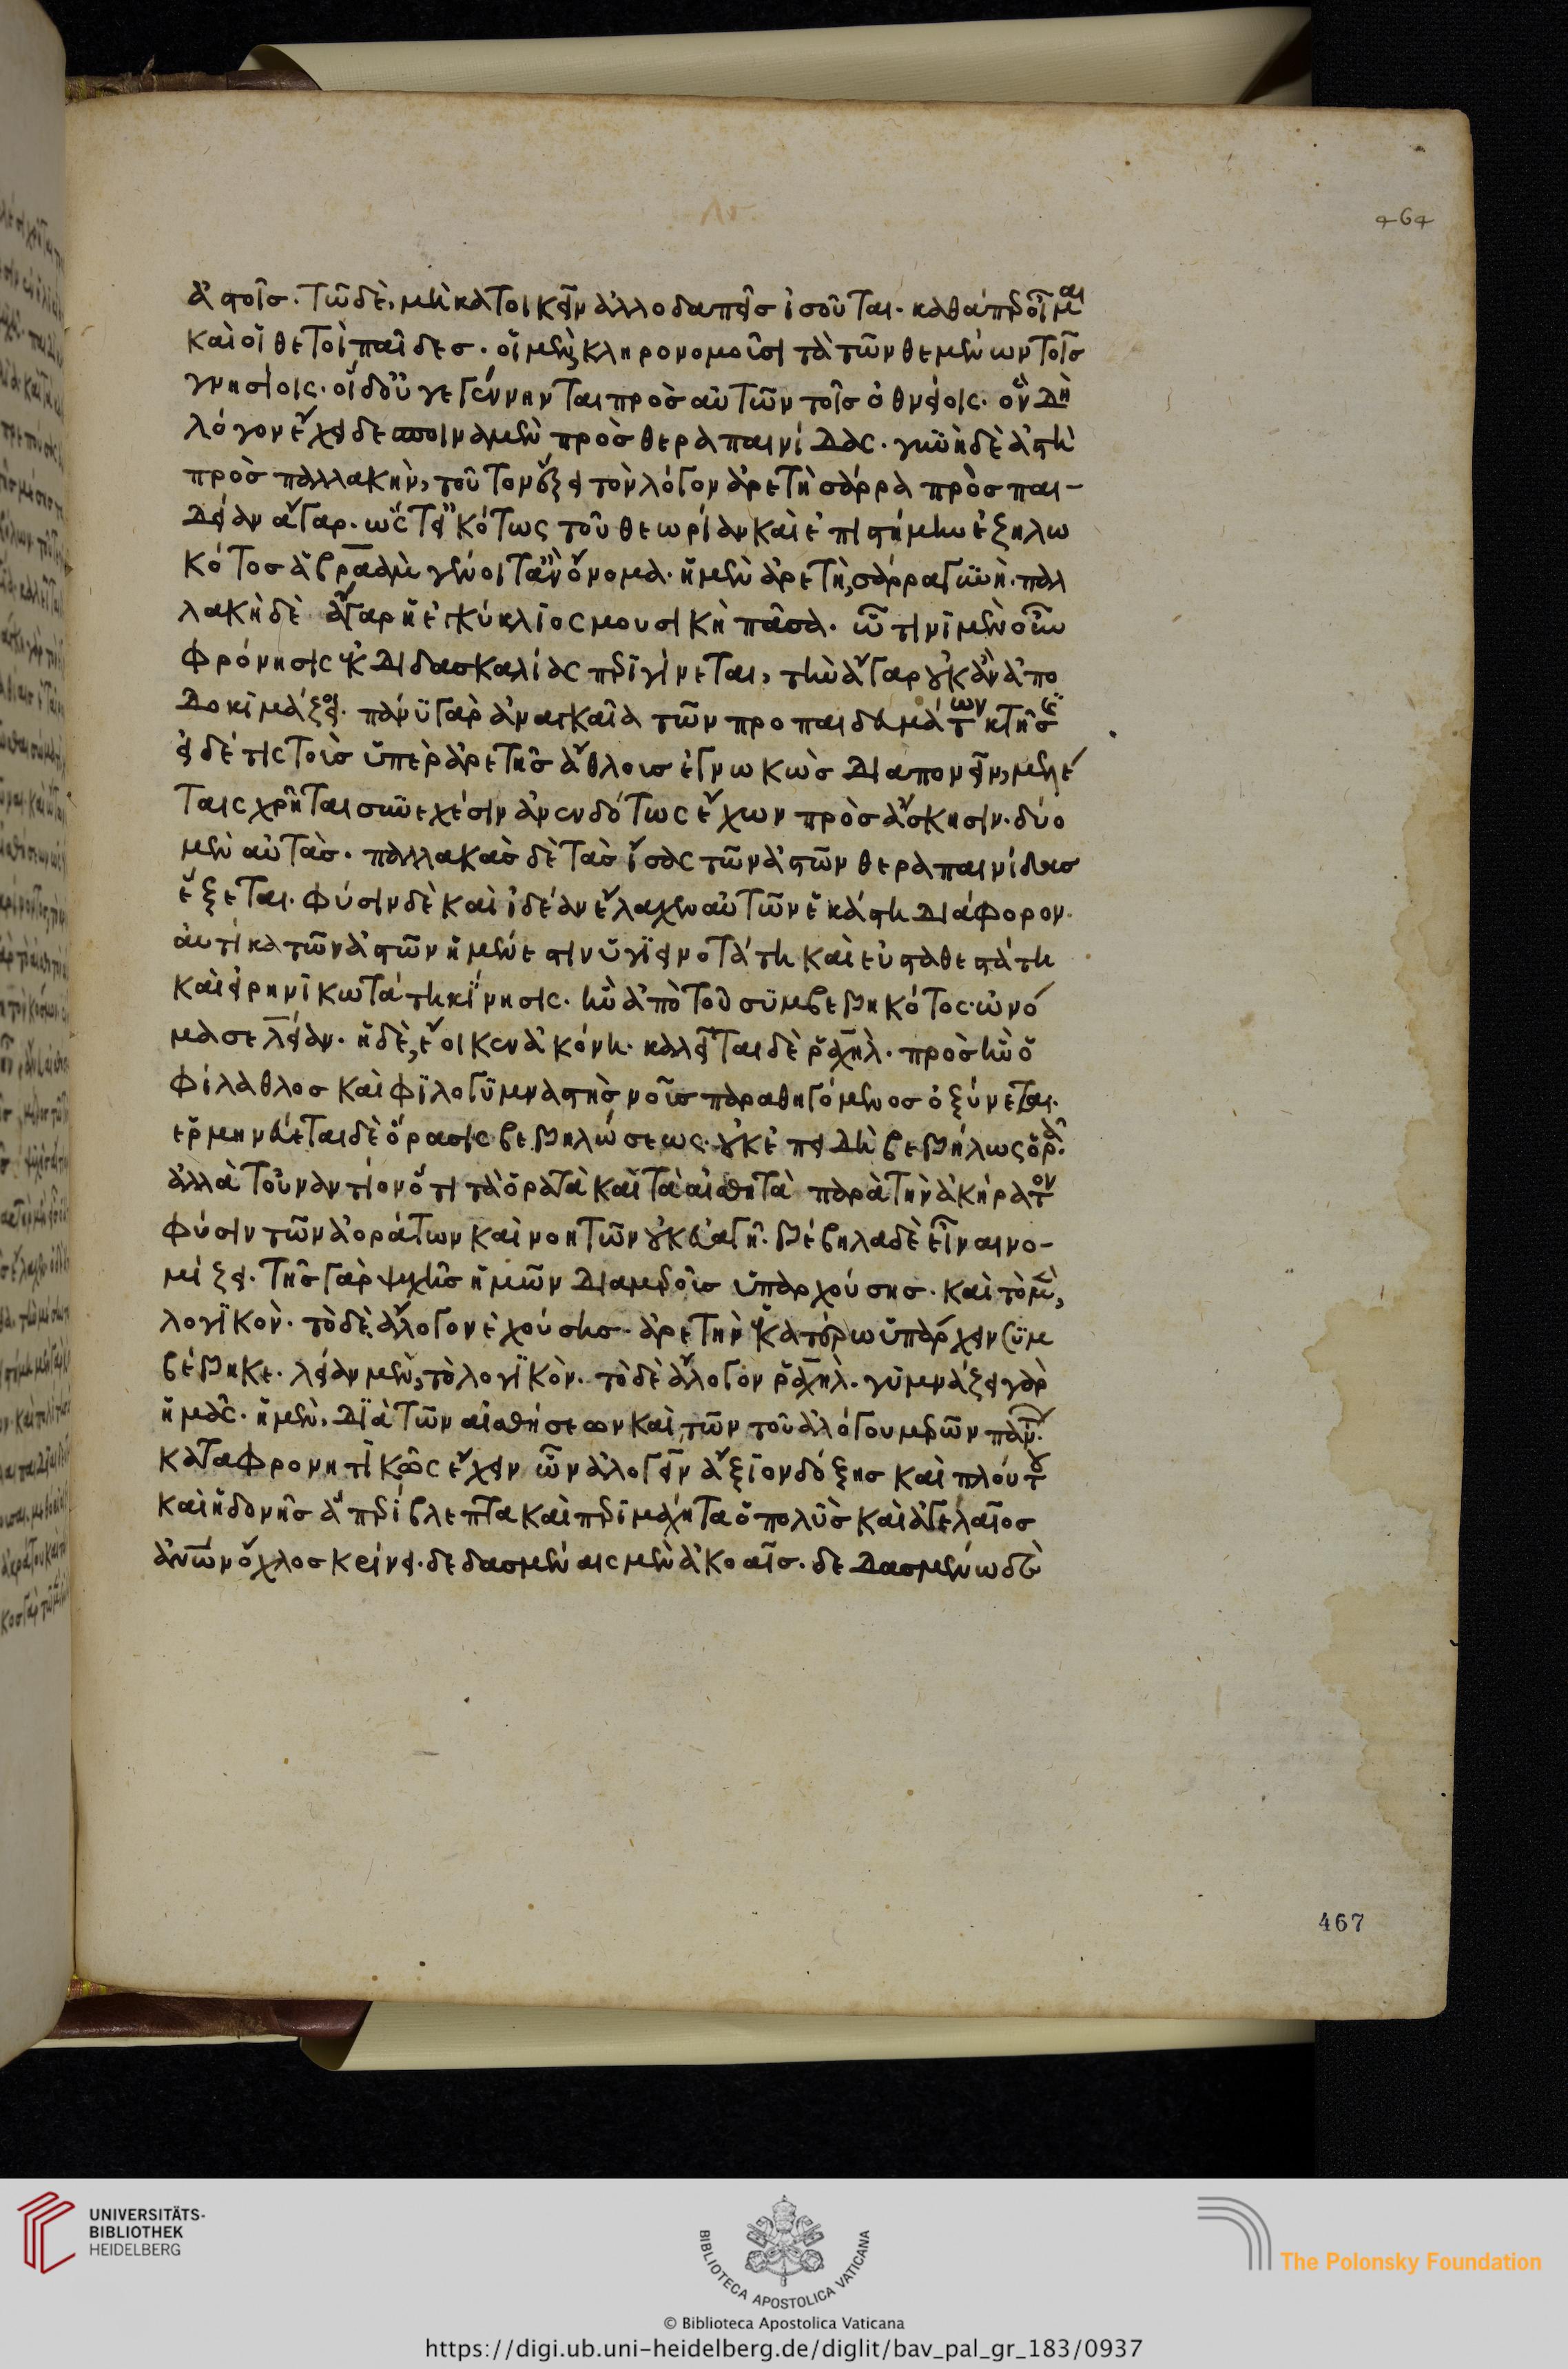 ἀστοῖς. τῶ δὲ, μὴ κατοικεῖν ἀλλοδαπεῖς ἰσοῦται. καθάπερ οἶμαι
καὶ οἱ θετοὶ παῖδες. οἳ μὲν κληρονομοῦσι τὰ τῶν θεμένων τοῖς
γνησίοις. οἱ δ' οὔ γε γέννηνται πρὸς αὐτῶν τοῖς ὀθνείοις. ὃν δὴ
λόγον ἔχει δεσποινα μὲν πρὸς θεραπαινίδας. γυνὴ δὲ ἀστὴ
πρὸς παλλακὴν, τοῦτον ἕξει τὸν λόγον ἀρετὴ σάρρα πρὸς παι-
δείαν ἄγαρ. ὥστ' εἰκότως τοῦ θεωρίαν καὶ ἐπιστήμην ἐζηλω
κότος ἀβραὰμ γένοιτ' ἂν ὄνομα. ἡ μὲν ἀρετὴ, σάρρα γυνὴ. παλ
λακὴ δὲ ἄγαρ ἡ ἐγκύκλιος μουσικὴ πᾶσα. ὧτινι μὲν οὖν
φρόνησις ἐκ διδασκαλίας περιγίνεται, τὴν ἄγαρ οὐκ ἂν ἀπο
δοκιμάζοι. πάνυ γὰρ ἀναγκαῖα τῶν προπαιδευμάτων κτῆσις
εἰ δέ τις τοὺς ὑπὲρ ἀρετῆς ἄθλους ἐγνωκὼς διαπονεῖν, μελέ
ταις χρῆται συνεχέσιν ἀνενδότως ἔχων πρὸς ἄσκησιν. δύο
μὲν αὐτὰς. παλλακὰς δὲ τὰς ἴσας τῶν ἀστῶν θεραπαινίδας
ἕξεται. φύσιν δὲ καὶ ἰδέαν ἔλαχεν αὐτῶν ἑκάστη διάφορον.
αὐτίκα τῶν ἀστῶν ἡ μὲν ἐστιν ὑγιεινοτάτη καὶ εὐσταθεστάτη
καὶ εἰρηνικωτάτη κίνησις. ἣν ἀπὸ τοῦ συμβεβηκότος ὠνό
μασε λείαν. ἡ δὲ, ἔοικεν ἀκόνη. καλεῖται δὲ ῥαχὴλ. πρὸς ἣν ὁ
φίλαθλος καὶ φιλογυμναστὴς νοῦς παραθηγόμενος ὀξύνεται.
ἑρμηνεύεται δὲ ὅρασις βεβηλώσεως. οὐκ ἐπειδὴ βεβήλως ὁρᾶ.
ἀλλὰ τοὐναντίον ὅτι τὰ ὁρατὰ καὶ τὰ αἰσθητὰ παρὰ τὴν ἀκήρατον
φύσιν τῶν ἀοράτων καὶ νοητῶν οὐκ εὐαγῆ. βέβηλα δὲ εἶναι νο-
μίζει. τῆς γὰρ ψυχῆς ἡμῶν διαμεροῦς ὑπαρχούσης. καὶ τὸ μὲν,
λογικὸν. τὸ δὲ ἄλογον ἐχούσης. ἀρετὴν ἑκατέρω ὑπάρχειν συμ
βέβηκε. λείαν μὲν, τὸ λογικὸν. τὸ δὲ ἄλογον ῥαχὴλ. γυμνάζει γὰρ
ἡμᾶς. ἡ μὲν, διὰ τῶν αἰσθήσεων καὶ τῶν τοῦ ἀλόγου μερῶν πάντ.
καταφρονητικῶς ἔχειν ὧν ἀλογεῖν ἄξιον δόξης καὶ πλούτου
καὶ ἡδονῆς ἃ περίβλεπτα καὶ περιμάχητα ὁ πολὺς καὶ ἀγελαῖος
ἀνθρώπων ὄχλος κρίνει. δεδασμέναις μὲν ἀκοαῖς. δεδασμένω δὲ
464
467
UNIVERSITÄTS-
BIBLIOTHEK
HEIDELBERG
BIBLIOTECA APOSTOLICA VATICANA
The Polonsky Foundation
© Biblioteca Apostolica Vaticana
https://digi.ub.uni-heidelberg.de/diglit/bav_pal_gr_183/0937